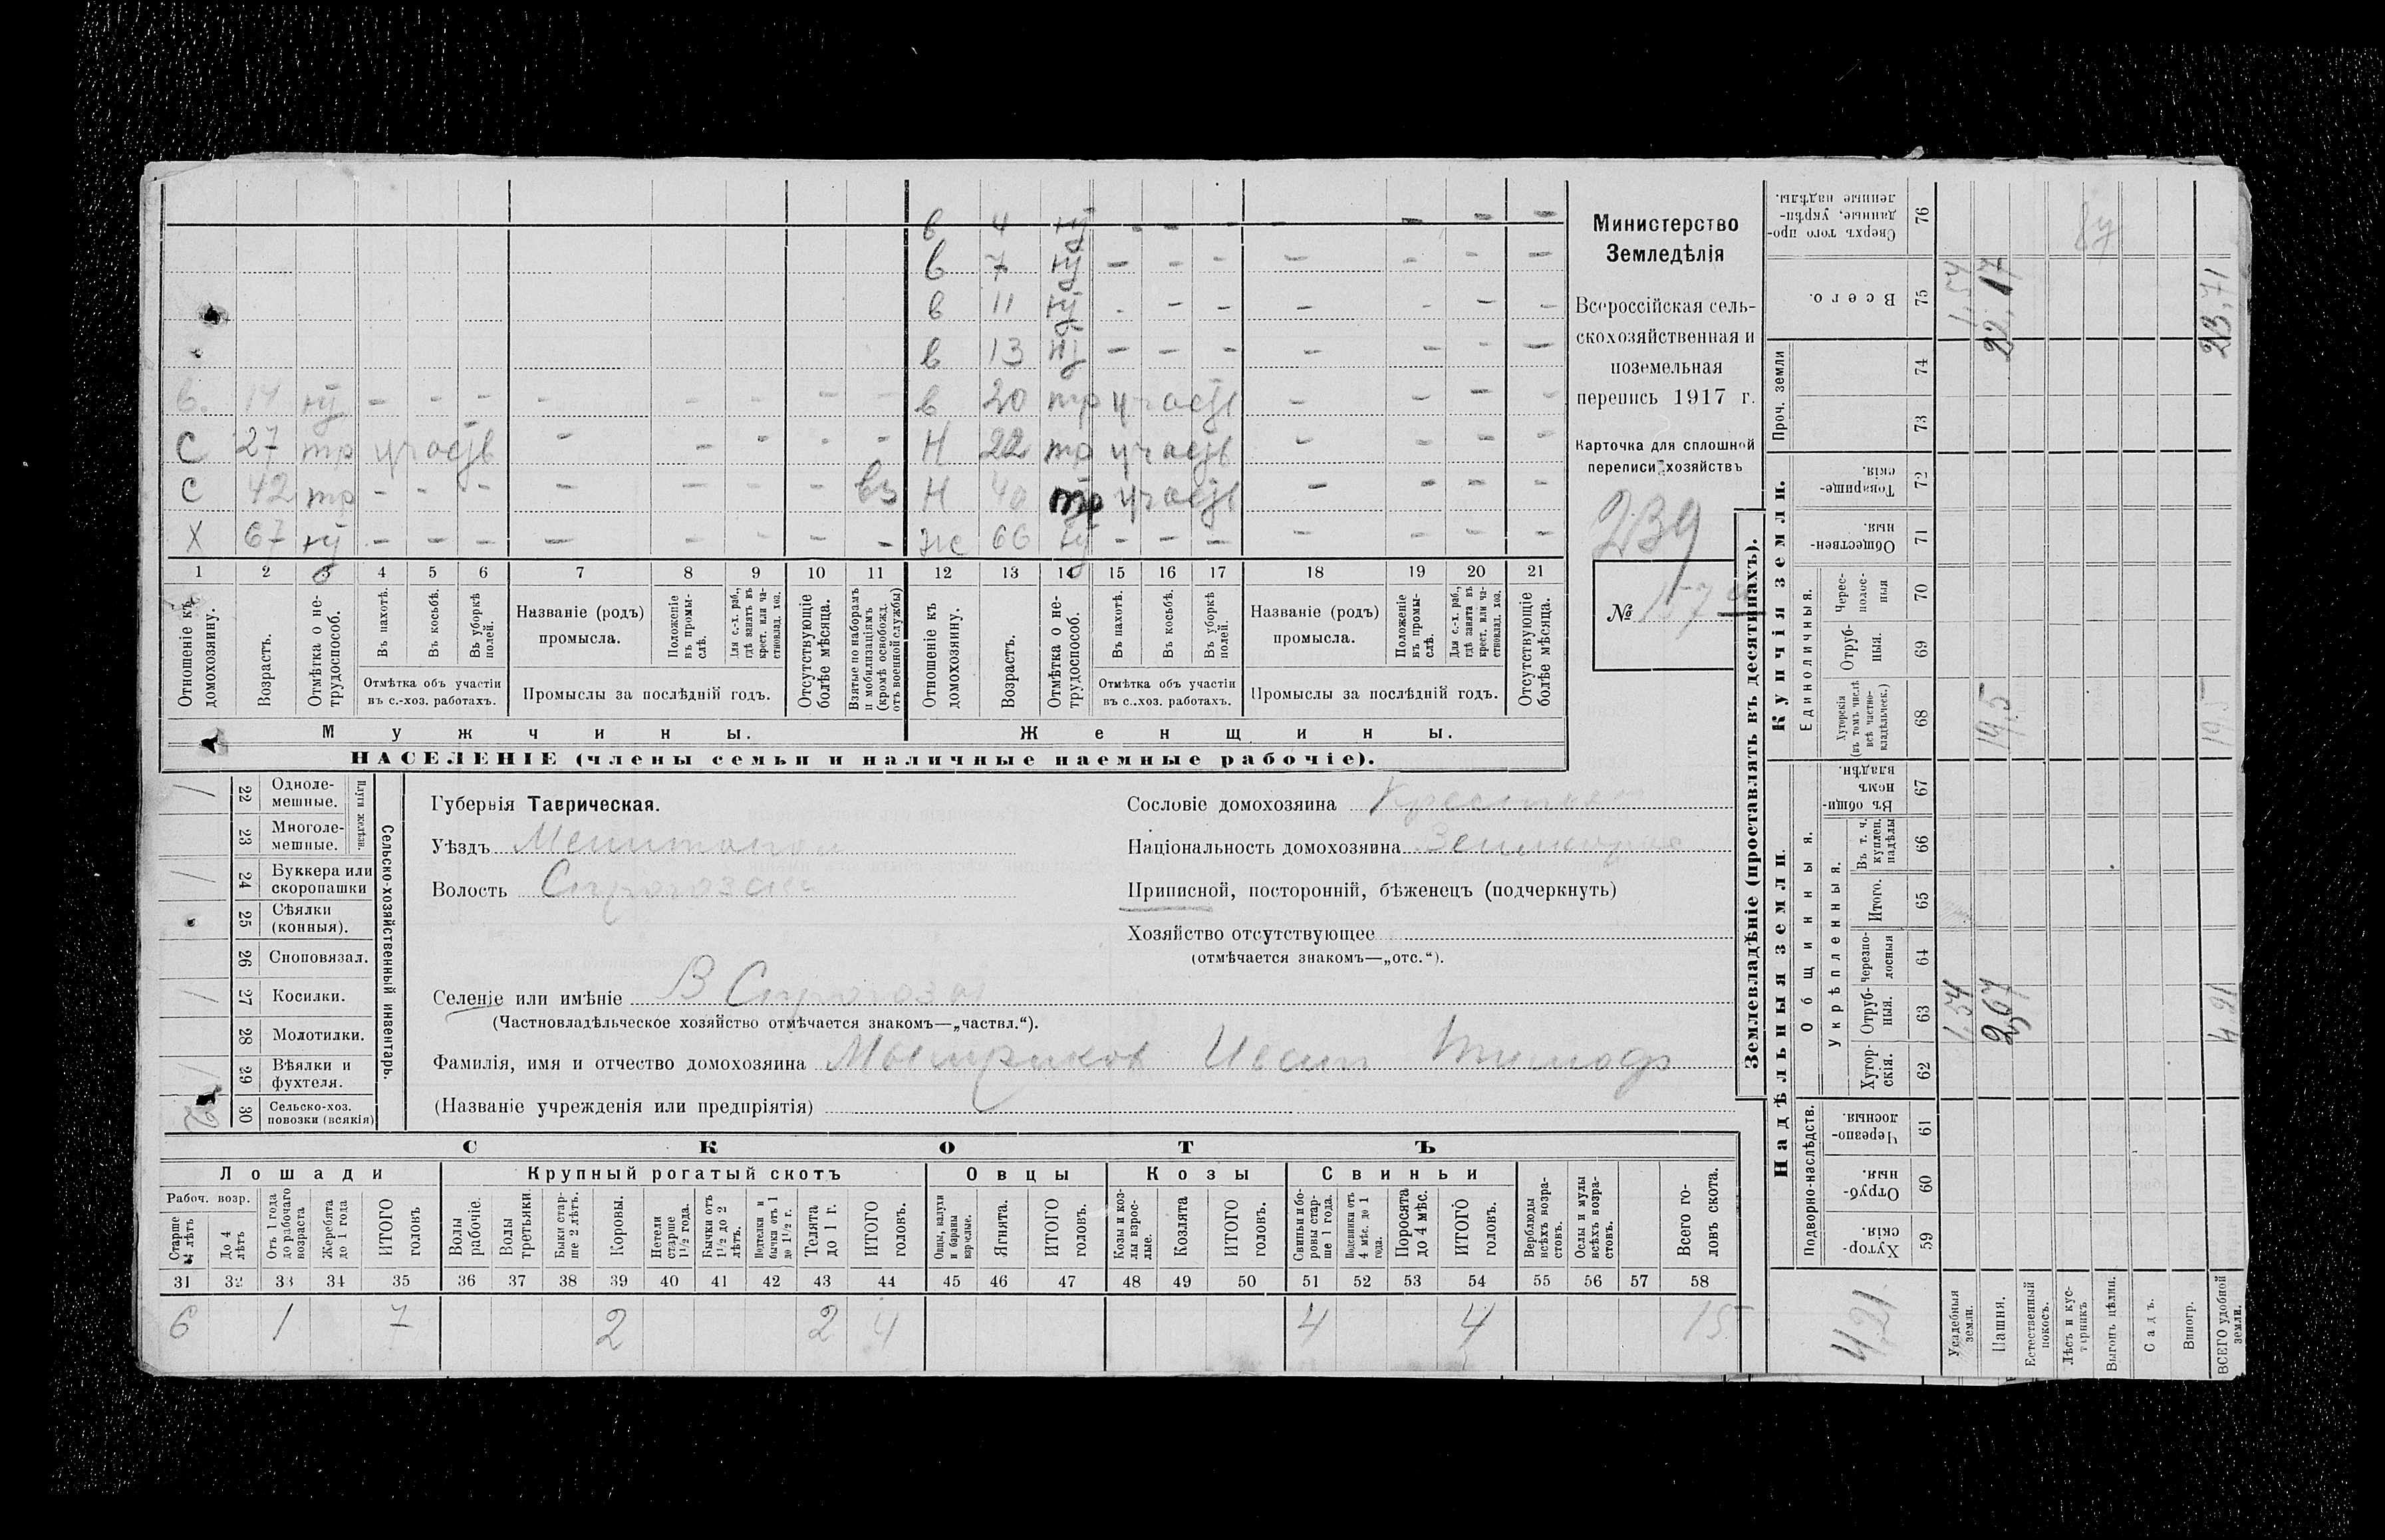 в 4 нт - - - - - - -
в 7 нт - - - - - - -
в 11 нт - - - - - - -
в 13 нт - - - - - - -
в. 14 нт - - - - - - - - в 20 тр участв - - - -
С 27 тр участв - - - - - Н 22 тр участв - - - -
С 42 тр - - - - - - - вз Н 40 тр участв - - - -
Х 67 нт - - - - - - - - ж 66 нт - - - - - - -
1 2 3 4 5 6 7 8 9 10 11 12 13 14 15 16 17 18 19 20 21
Отношеніе къ домохозяину.
Возрастъ.
Отмѣтка о нетрудоспособ.
Въ пахотѣ.
Въ косьбѣ.
Въ уборкѣ полей.
Отмѣтка объ участіи въ с.-хоз. работахъ.
Названіе (родъ) промысла.
Положеніе въ промыслѣ.
Для с.-х. раб., гдѣ занятъ въ крест. или частновлад. хоз.
Промыслы за послѣдній годъ.
Отсутствующіе болѣе мѣсяца.
Взятые по наборамъ и мобилизаціямъ (кромѣ освобожд. отъ военной службы)
Отношеніе къ домохозяину.
Возрастъ.
Отмѣтка о нетрудоспособ.
Въ пахотѣ.
Въ косьбѣ.
Въ уборкѣ полей.
Отмѣтка объ участіи въ с..хоз. работахъ.
Названіе (родъ) промысла.
Положеніе въ промыслѣ.
Для с.-х. раб., гдѣ занята въ крест. или частновлад. хоз.
Промыслы за послѣдній годъ.
Отсутствующіе болѣе мѣсяца.
Мужчины. Женщины.
НАСЕЛЕНІЕ (члены семьи и наличные наемные рабочіе).
Министерство
Земледѣлія
Всероссійская сель-
скохозяйственная и
поземельная
перепись 1917 г.
Карточка для сплошной
переписи хозяйствъ
239
№ 157
Сельско-хозяйственный инвентарь.
Плуги желѣзн.
22 Одноле-
мешные. /
23 Многоле-
мешные.
24 Буккера или
скоропашки /
25 Сѣялки
(конныя).
26 Сноповязал.
27 Косилки. /
28 Молотилки.
29 Вѣялки и
фухтеля. /
30 Сельско-хоз.
повозки (всякія)
Губернія Таврическая.
Уѣздъ Мелитопол
Волость Сирогозская
Селеніе или имѣніе В Сирогозы
(Частновладѣльческое хозяйство отмѣчается знакомъ—„частвл.“).
Фамилія, имя и отчество домохозяина Иван Тимоф
(Названіе учрежденія или предпріятія)
Сословіе домохозяина Крестьян
Національность домохозяина
Приписной, посторонній, бѣженецъ (подчеркнуть)
Хозяйство отсутствующее
(отмѣчается знакомъ—„отс.“).
СКОТЪ
Лошади Крупный рогатый скотъ Овцы Козы Свиньи
Рабоч. возр.
Старше 4 лѣтъ
До 4 лѣтъ
Отъ 1 года до рабочаго возраста
Жеребята до 1 года
ИТОГО головъ
Волы рабочіе.
Волы третьяки.
Быки старше 2 лѣтъ.
Коровы.
Нетели старше 1½ года.
Бычки отъ 1½ до 2 лѣтъ.
Подтелки и бычки отъ 1 до 1½ г.
Телята до 1 г.
ИТОГО головъ.
Овцы, валухи и бараны взрослые.
Ягнята.
ИТОГО головъ.
Козы и козлы взрослые.
Козлята
ИТОГО головъ.
Свиньи и боровы старше 1 года.
Подсвинки отъ 4 мѣс. до 1 года.
Поросята до 4 мѣс.
ИТОГО головъ.
Верблюды всѣхъ возрастовъ.
Ослы и мулы всѣхъ возрастовъ.
Всего головъ скота.
31 32 33 34 35 36 37 38 39 40 41 42 43 44 45 46 47 48 49 50 51 52 53 54 55 56 57 58
6 1 7 2 2 4 4 4 15
Землевладѣніе (проставлять въ десятинахъ).
Надѣльныя земли. Купчія земли.
Подворно-наслѣдств.
Общинныя.
Укрѣпленныя.
Единоличныя.
Проч. земли
Хуторскія. 59
Отрубныя. 60
Черезполосныя. 61
Хуторскія. 62
Отрубныя. 63
черезполосныя 64
Итого. 65
Въ т. ч. куплен. надѣлы 66
Въ общинномъ владѣн. 67
Хуторскія (въ томъ числѣ всѣ частновладѣльческ.) 68
Отрубныя. 69
Чересполосныя 70
Общественныя. 71
Товарищескія. 72
73
74
Всего. 75
Сверхъ того проданные, укрѣпленные надѣлы. 76
4,21
Усадебныя земли. 1,54 1,54
Пашня. 2,67 19,5 22,17
Естественный покосъ.
Лѣсъ и кустарникъ
Выгонъ цѣлин.
Садъ.
Виногр.
ВСЕГО удобной земли. 4,21 19,5 23,71